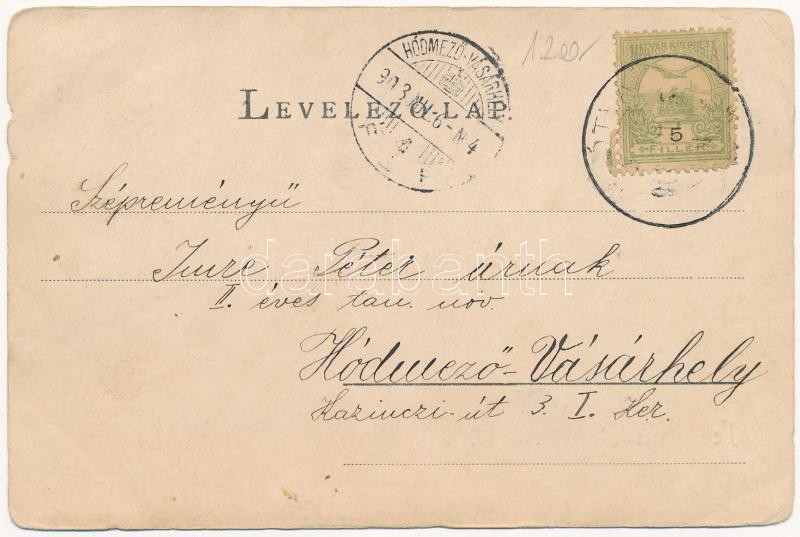 1200
LEVELEZŐ-LAP.
HÓDMEZŐ-VÁSÁRHELY
MAGYAR KIR. POSTA
5
FILLÉR
Szépreményű
Imre Péter úrnak
II. éves tan. növ.
Hódmező-Vásárhely
Kazinczi-út 3. I. Ker.
darabanth